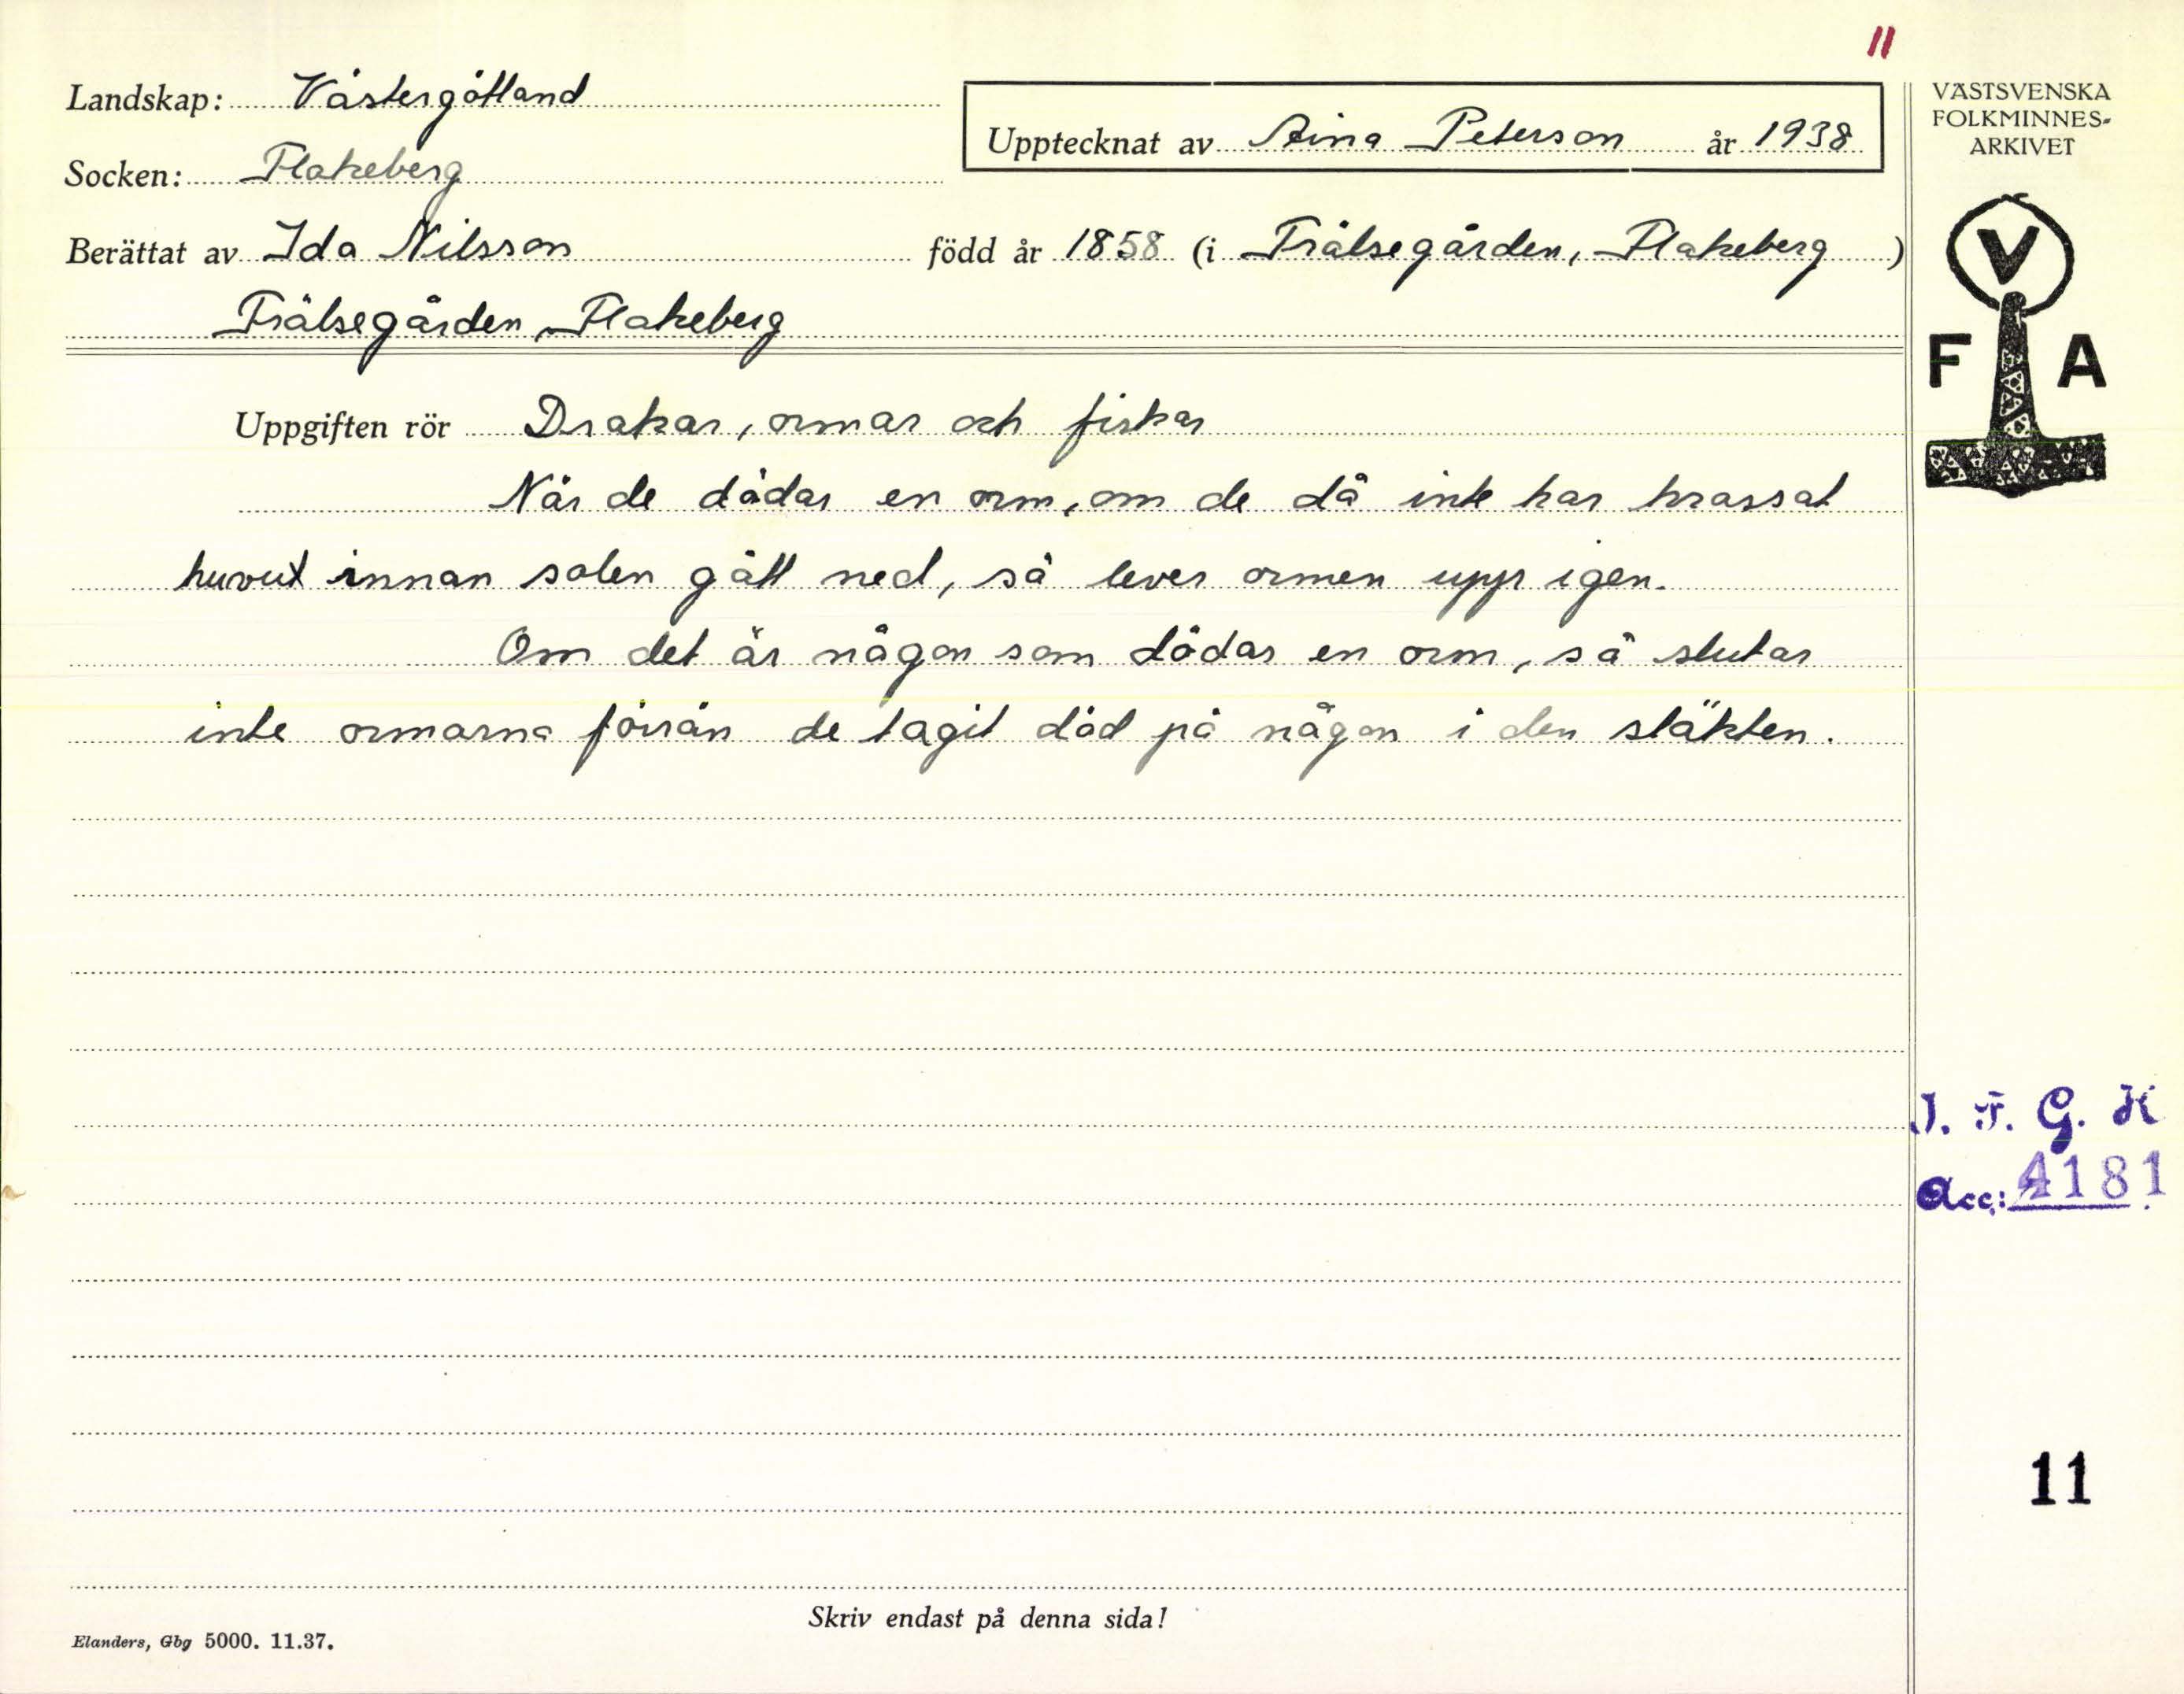 11
Landskap: Västergötland
Upptecknat av Aina Peterson år 1938
Socken: Flakeberg
Berättat av Ida Nilsson född år 1858 (i Frälsegården, Flakeberg)
Frälsegården, Flakeberg
VÄSTSVENSKA
FOLKMINNES-
ARKIVET
V
F A
Uppgiften rör Drakar, ormar och fiskar
När de dödar en orm, om de då inte har krassat
huvut innan solen gått ned, så lever ormen upp igen.
Om det är någon som dödar en orm, så slutar
inte ormarna förrän de tagit död på någon i den släkten.
I. F. G. H
Acc: 4181.
11
Skriv endast på denna sida!
Elanders, Gbg 5000. 11.37.